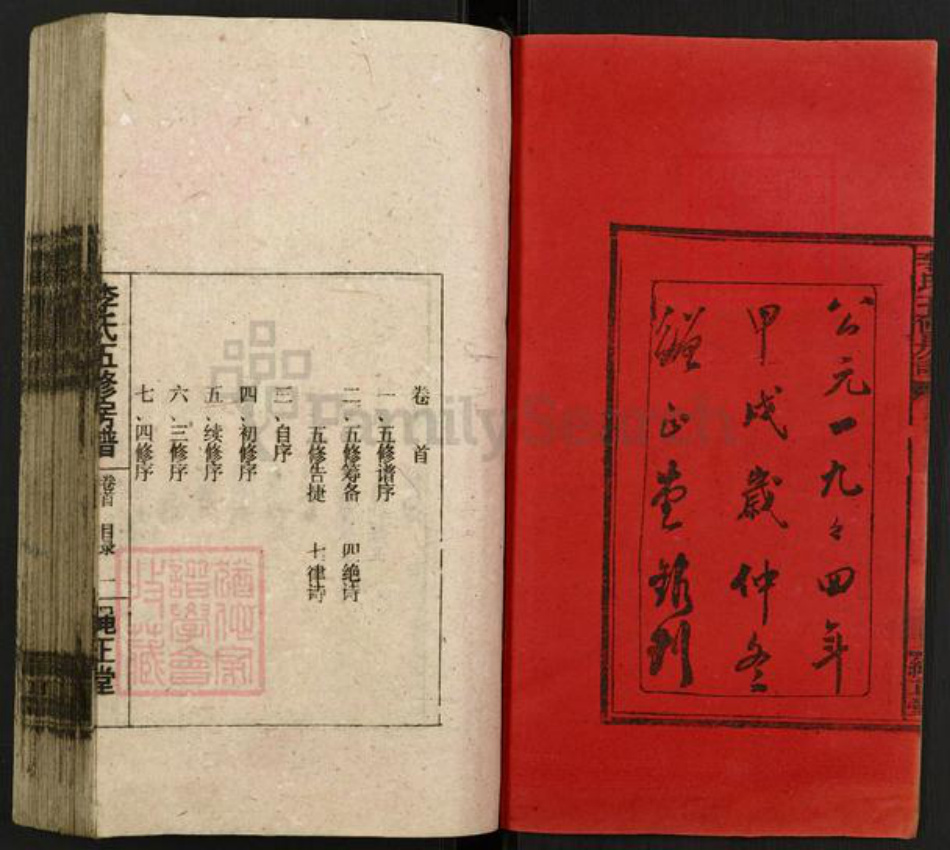 公元一九々四年
甲戌歲仲冬
正堂鐫刊
卷首
一、五修谱序
二、五修筹备 四绝诗
五修告捷 七律诗
三、自序
四、初修序
五、续修序
六、三修序
七、四修序
李氏五修房谱
卷首 目录 一
绳正堂
譜學會
收藏
FamilySearch